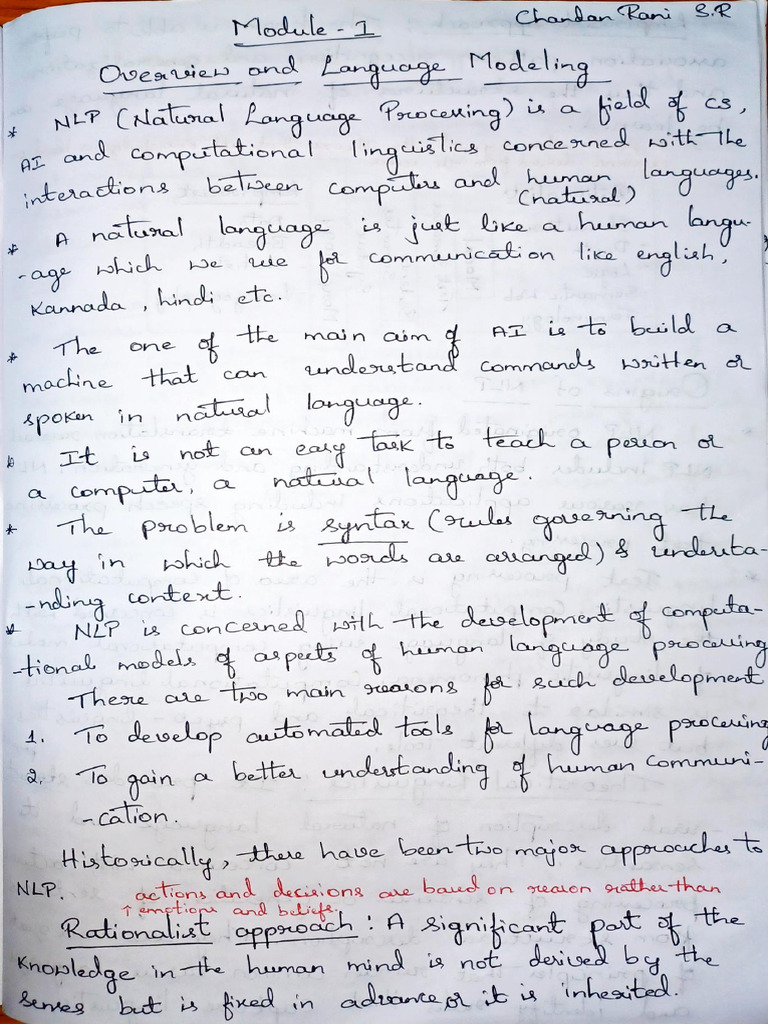 Chandan Rani S.R
Module - 1
Overview and Language Modeling
* NLP (Natural Language Processing) is a field of CS,
AI and computational linguistics concerned with the
interactions between computers and human languages.
(natural)
* A natural language is just like a human langu-
-age which we use for communication like english,
Kannada, hindi etc.
* The one of the main aim of AI is to build a
machine that can understand commands written or
spoken in natural language.
* It is not an easy task to teach a person or
a computer, a natural language.
* The problem is syntax (rules governing the
way in which the words are arranged) & understa-
-nding context.
* NLP is concerned with the development of computa-
-tional models of aspects of human language processing
There are two main reasons for such development
1. To develop automated tools for language processing
2. To gain a better understanding of human communi-
-cation.
Historically, there have been two major approaches to
NLP. actions and decisions are based on reason rather than
↑ emotions and beliefs.
Rationalist approach : A significant part of the
knowledge in the human mind is not derived by the
senses but is fixed in advance or it is inherited.